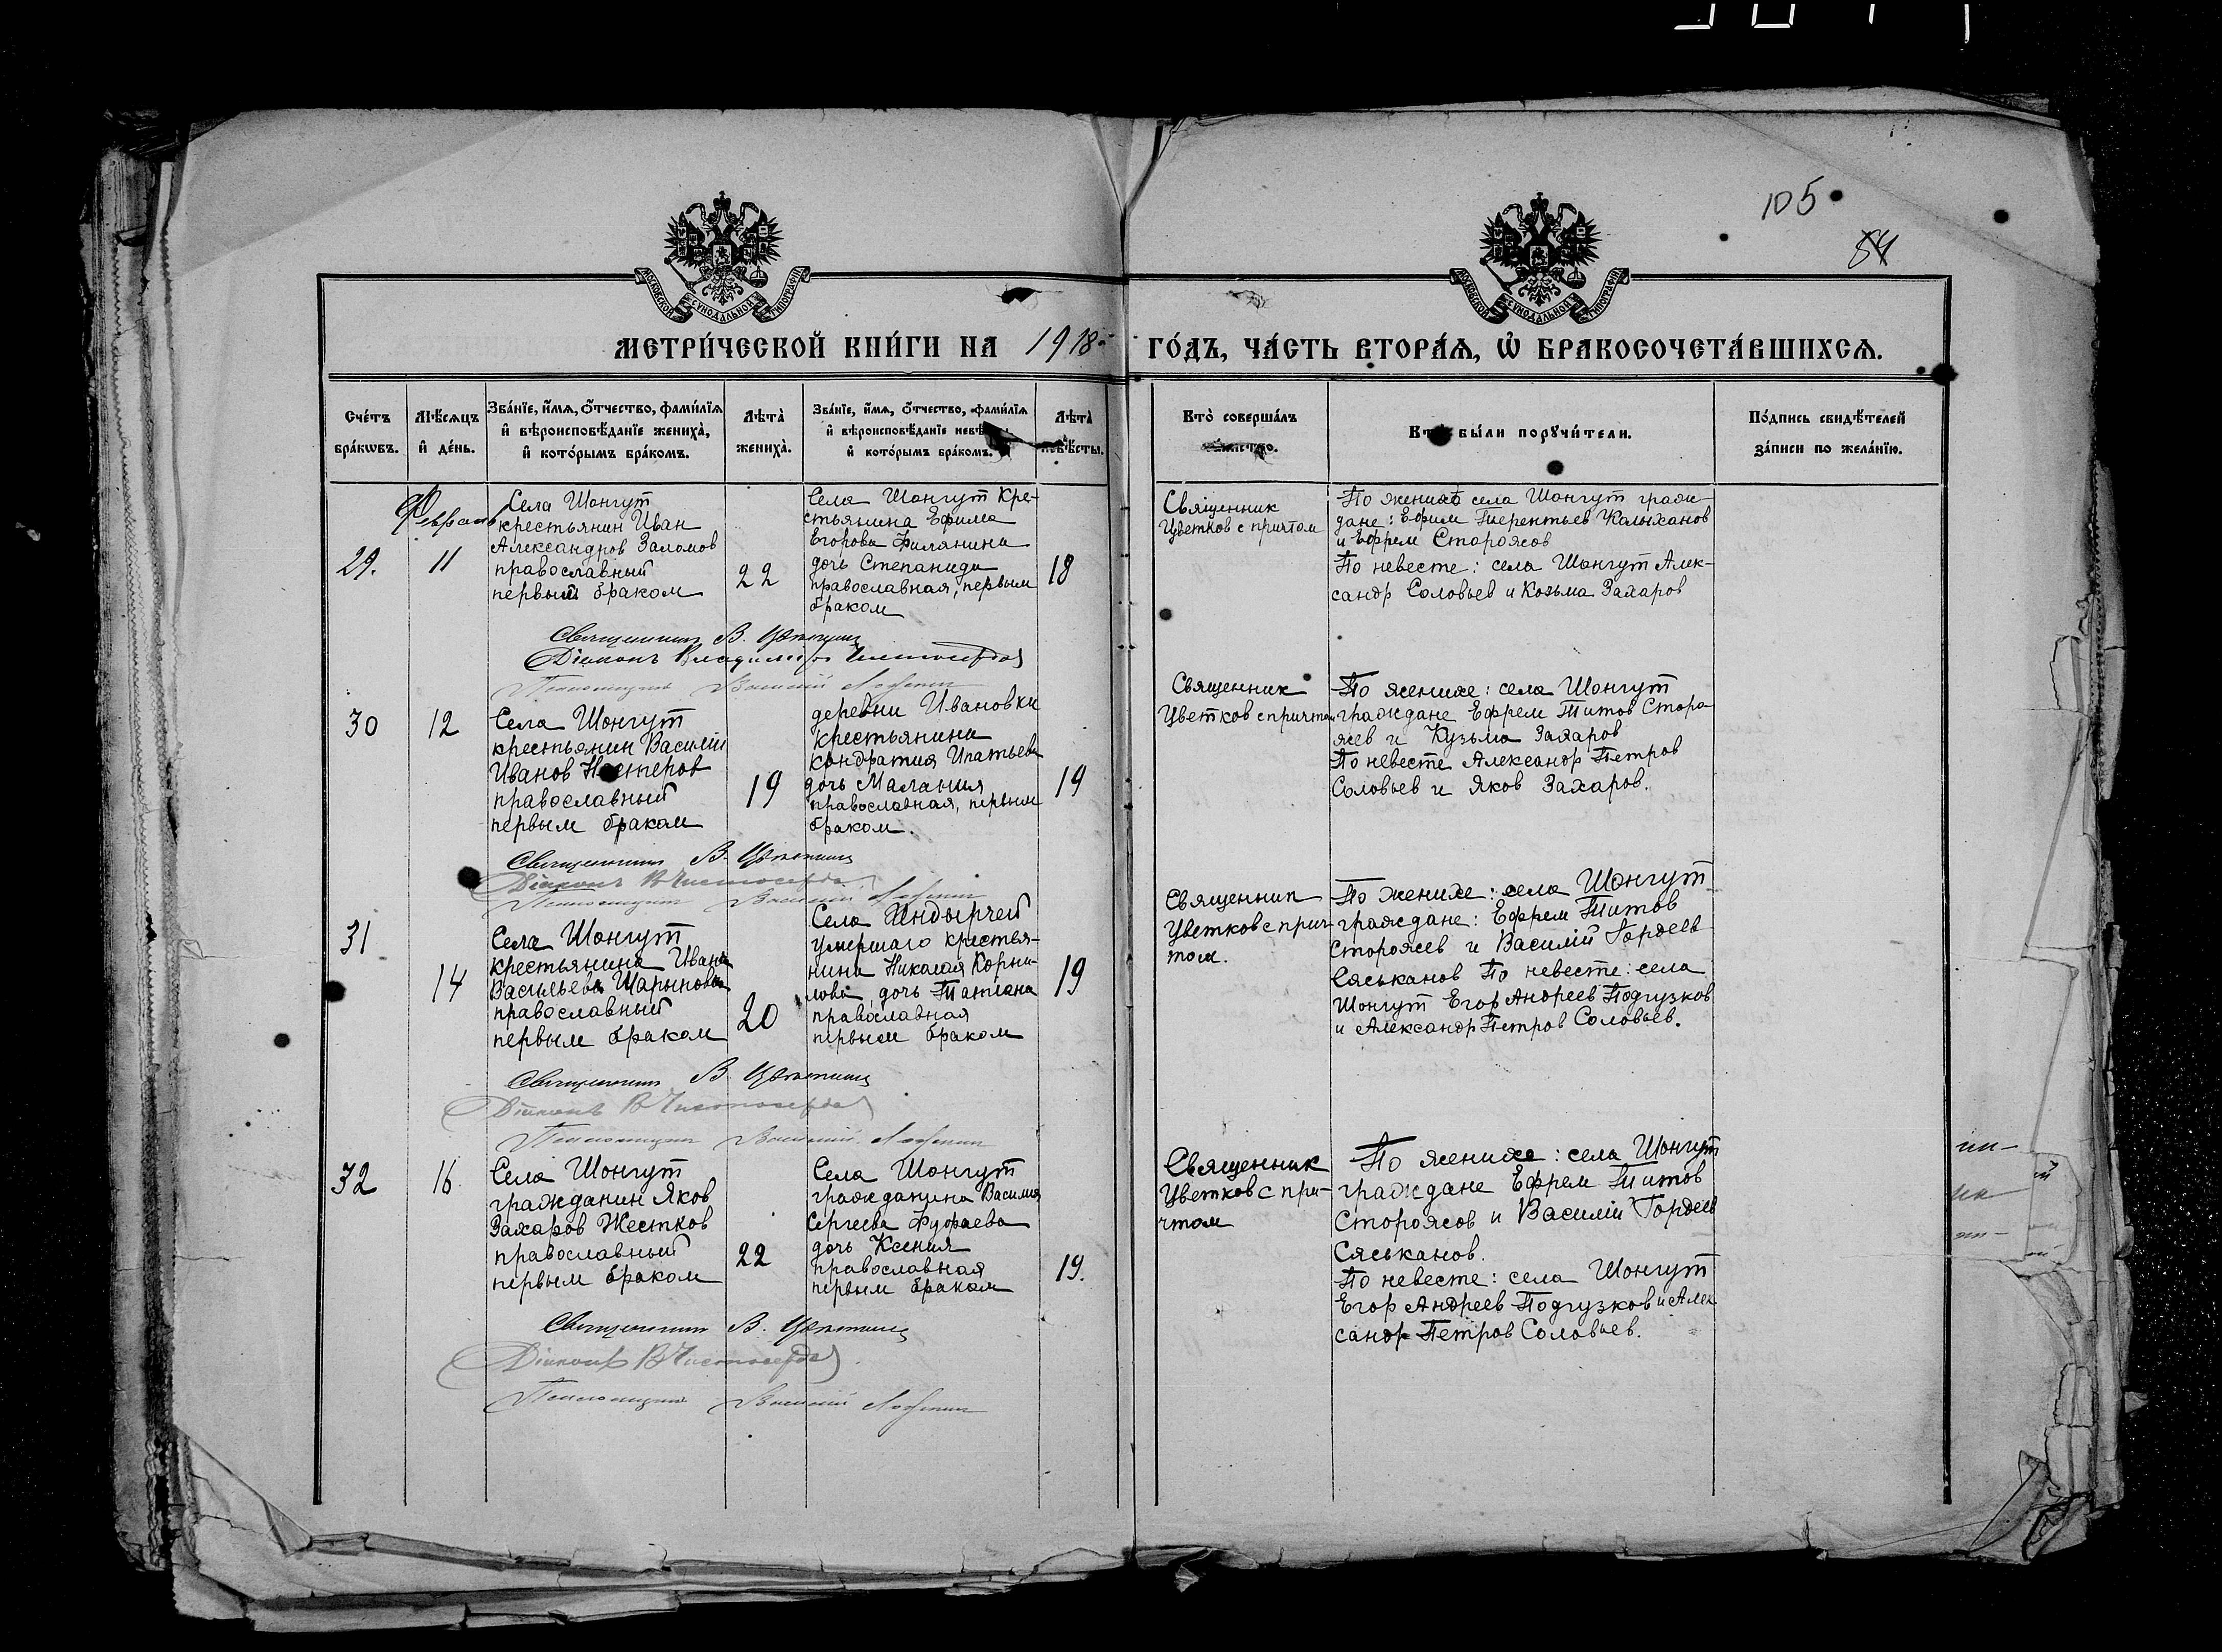 105
84
МОСКОВСКОЙ СѴНОДАЛЬНОЙ ТИПОГРАФІИ
МОСКОВСКОЙ СѴНОДАЛЬНОЙ ТИПОГРАФІИ
МЕТРИ́ЧЕСКОЙ КНИ́ГИ НА 1918 ГО́ДЪ, ЧА́СТЬ ВТОРА́Ѧ, Ѽ БРАКОСОЧЕТА́ВШИХСѦ.
Сче́тъ
бра́кѡвъ.
Мѣ́сяцъ
и҆ де́нь.
Зва́нїе, и҆́мѧ, ѻ҆́тчество, фами́лїѧ
и҆ вѣроисповѣ́данїе жениха̀,
и҆ кото́рымъ бра́комъ.
Лѣта̀
жениха̀.
Зва́нїе, и҆́мѧ, ѻ҆́тчество, фами́лїѧ
и҆ вѣроисповѣ́данїе
и҆ кото́рымъ бра́комъ.
Лѣта̀
невѣ́сты.
Кто̀ соверша́лъ
Кто̀ бы́ли порꙋчи́тели.
По́дпись свидѣ́телей
за́писи по жела́нїю.
Февраль
29.
11
Села Шонгут
крестьянин Иван
Александров Заломов
православный
первым браком
22
Села Шонгут кре-
стьянина Ефима
Егорова Филянина
дочь Степанида
православная, первым
браком
18
Священник
Цветков с причтом
По женихе села Шонгут граж-
дане: Ефим Терентьев Калыханов
и Ефрем Сторожов
По невесте: села Шонгут Алек-
сандр Соловьев и Козьма Захаров
Священник В. Цветков
Діаконъ Владимір Чистосердов
Псаломщик Василий
30
12
Села Шонгут
крестьянин Василий
Иванов Нестеров
православный
первым браком
19
деревни Ивановки
крестьянина
Кондратия Ипатьева
дочь Малания
православная, первым
браком.
19
Священник
Цветков с причтом
По женихе: села Шонгут
граждане Ефрем Титов Сторо-
жев и Кузьма Захаров
По невесте Александр Петров
Соловьев и Яков Захаров.
Священник В. Цветков
Діаконъ В Чистосердов
Псаломщик Василий
31
14
Села Шонгут
крестьянина Ивана
Васильева Шарынова
православный
первым браком
20
Села Индырчей
умершаго крестья-
нина Николая Корни-
лова дочь Татиана
православная
первым браком
19
Священник
Цветков с прич-
том.
По женихе: села Шонгут
граждане: Ефрем Титов
Сторожев и Василий Гордеев
Сяськанов По невесте: села
Шонгут Егор Андреев Подгузков
и Александр Петров Соловьев.
Священник В Цветков
Діаконъ В Чистосердов
Псаломщик Василий
32
16
Села Шонгут
гражданин Яков
Захаров Жестков
православный
первым браком
22
Села Шонгут
гражданина Василия
Сергеева Фуфаева
дочь Ксения
православная
первым браком
19.
Священник
Цветков с при-
чтом
По женихе: села Шонгут
граждане Ефрем Титов
Сторожов и Василий Гордеев
Сяськанов.
По невесте: села Шонгут
Егор Андреев Подгузков и Алек
сандр Петров Соловьев.
Священник В. Цветков
Діаконъ В Чистосердов
Псаломщик Василий